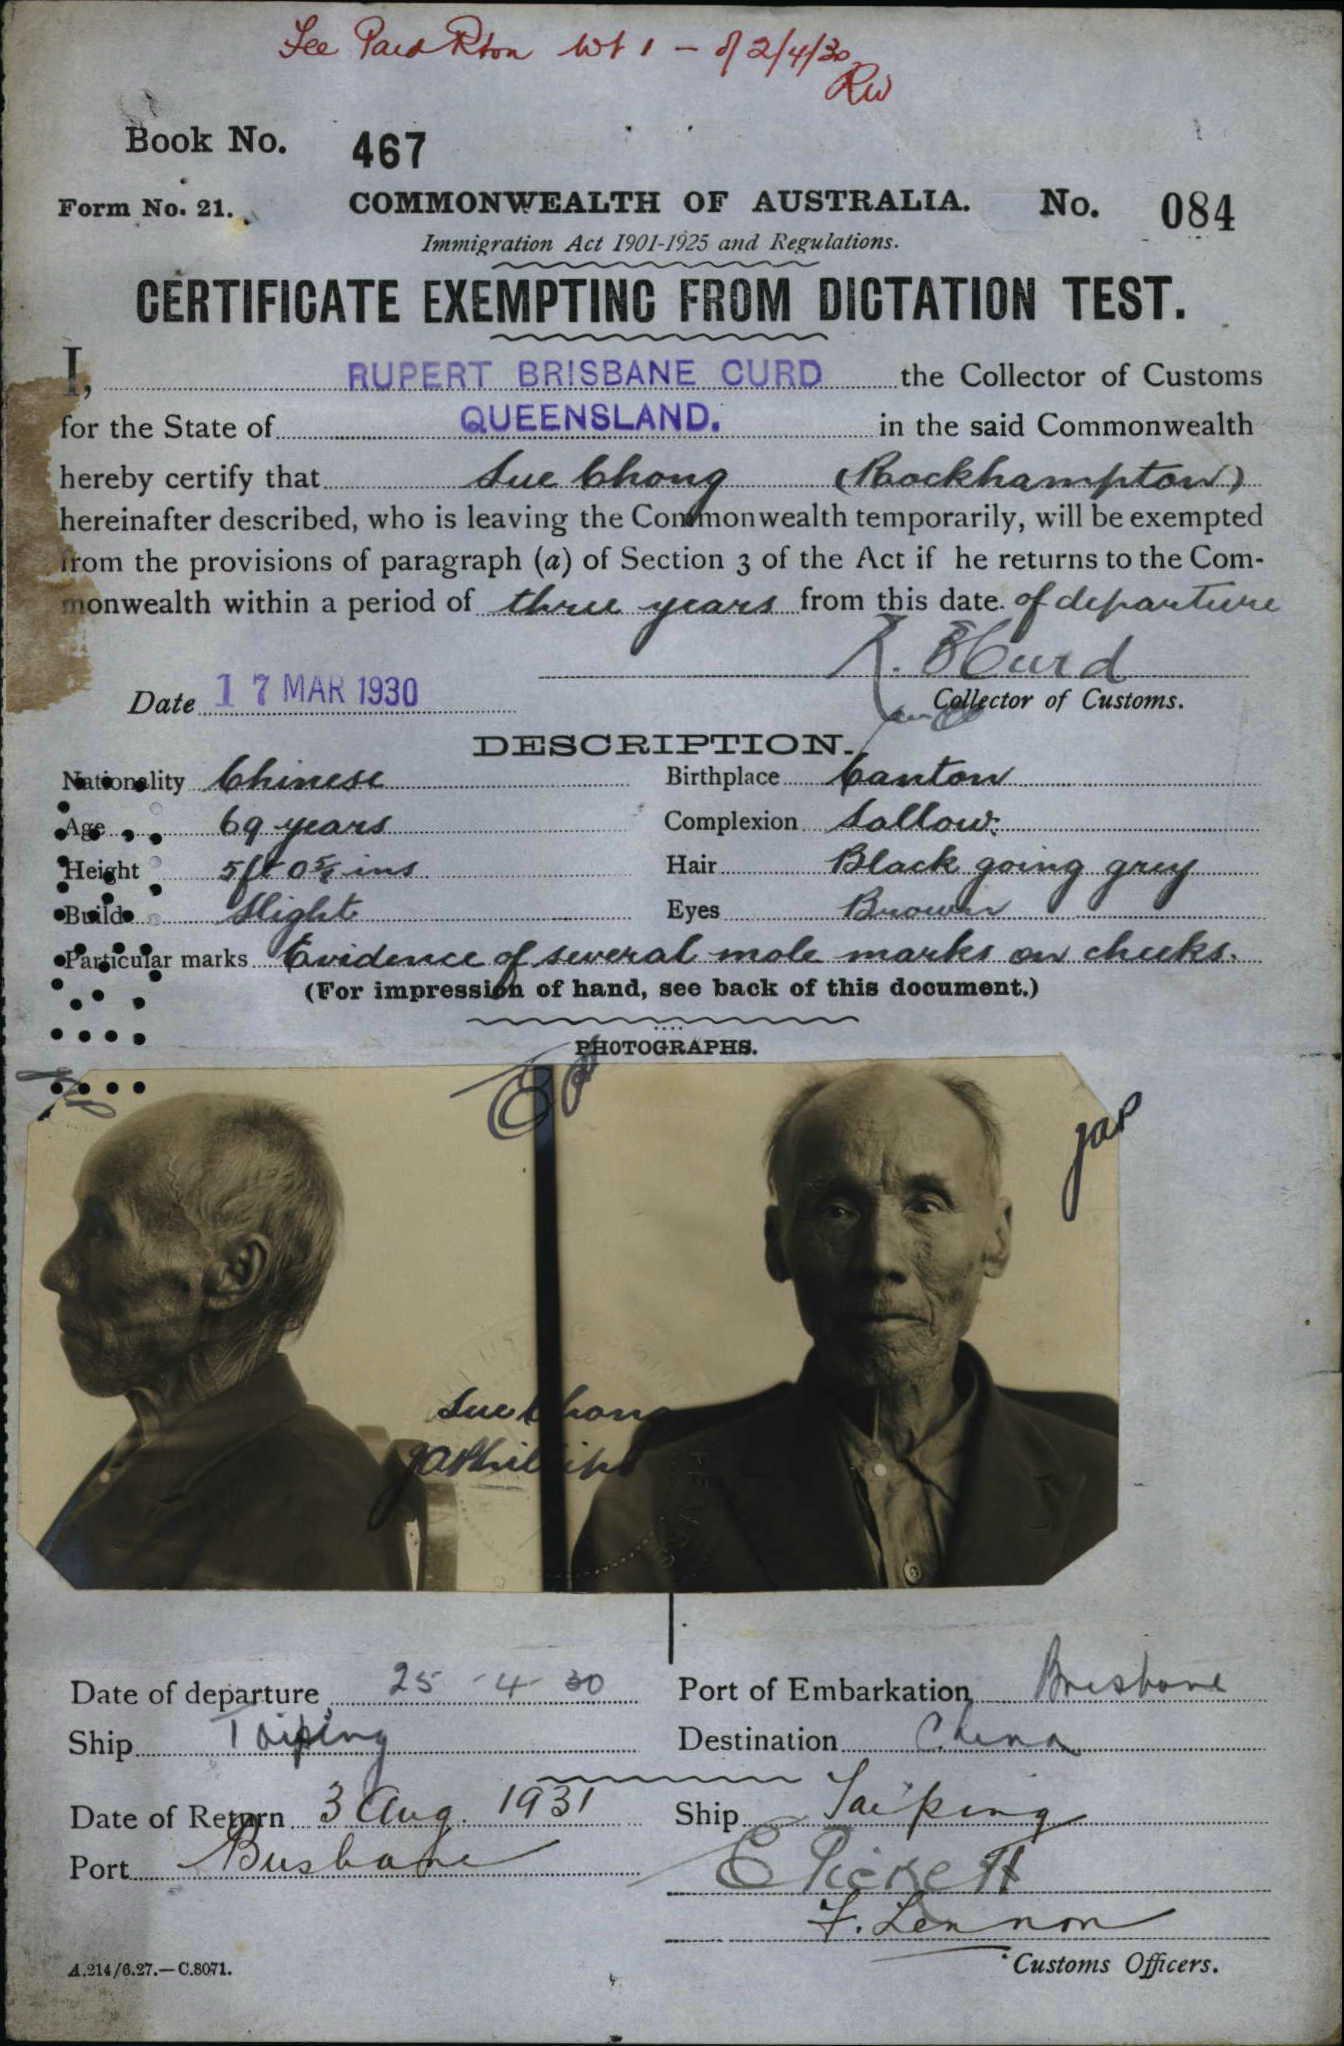 Fee Paid Rton Wt 1 - of 2/4/30
RW
Book No. 467
Form No. 21. COMMONWEALTH OF AUSTRALIA. No. 084
Immigration Act 1901-1925 and Regulations.
CERTIFICATE EXEMPTING FROM DICTATION TEST.
I, RUPERT BRISBANE CURD the Collector of Customs
for the State of QUEENSLAND. in the said Commonwealth
hereby certify that Sue Chong (Rockhampton)
hereinafter described, who is leaving the Commonwealth temporarily, will be exempted
from the provisions of paragraph (a) of Section 3 of the Act if he returns to the Com-
monwealth within a period of three years from this date of departure
R. B Curd
Date 17 MAR 1930 Collector of Customs.
DESCRIPTION.
Nationality Chinese Birthplace Canton
Age 69 years Complexion Sallow.
Height 5ft 0⅝ ins Hair Black going grey
Build Slight Eyes Brown
Particular marks Evidence of several mole marks on cheeks.
(For impression of hand, see back of this document.)
PHOTOGRAPHS.
JAP
Sue Chong
JAPhillips
Date of departure 25-4-30 Port of Embarkation Brisbane
Ship Taiping Destination China
Date of Return 3 Aug. 1931 Ship Taiping
Port Brisbane E Pickett
F. Lennon
Customs Officers.
A.214/6.27.—C.8071.